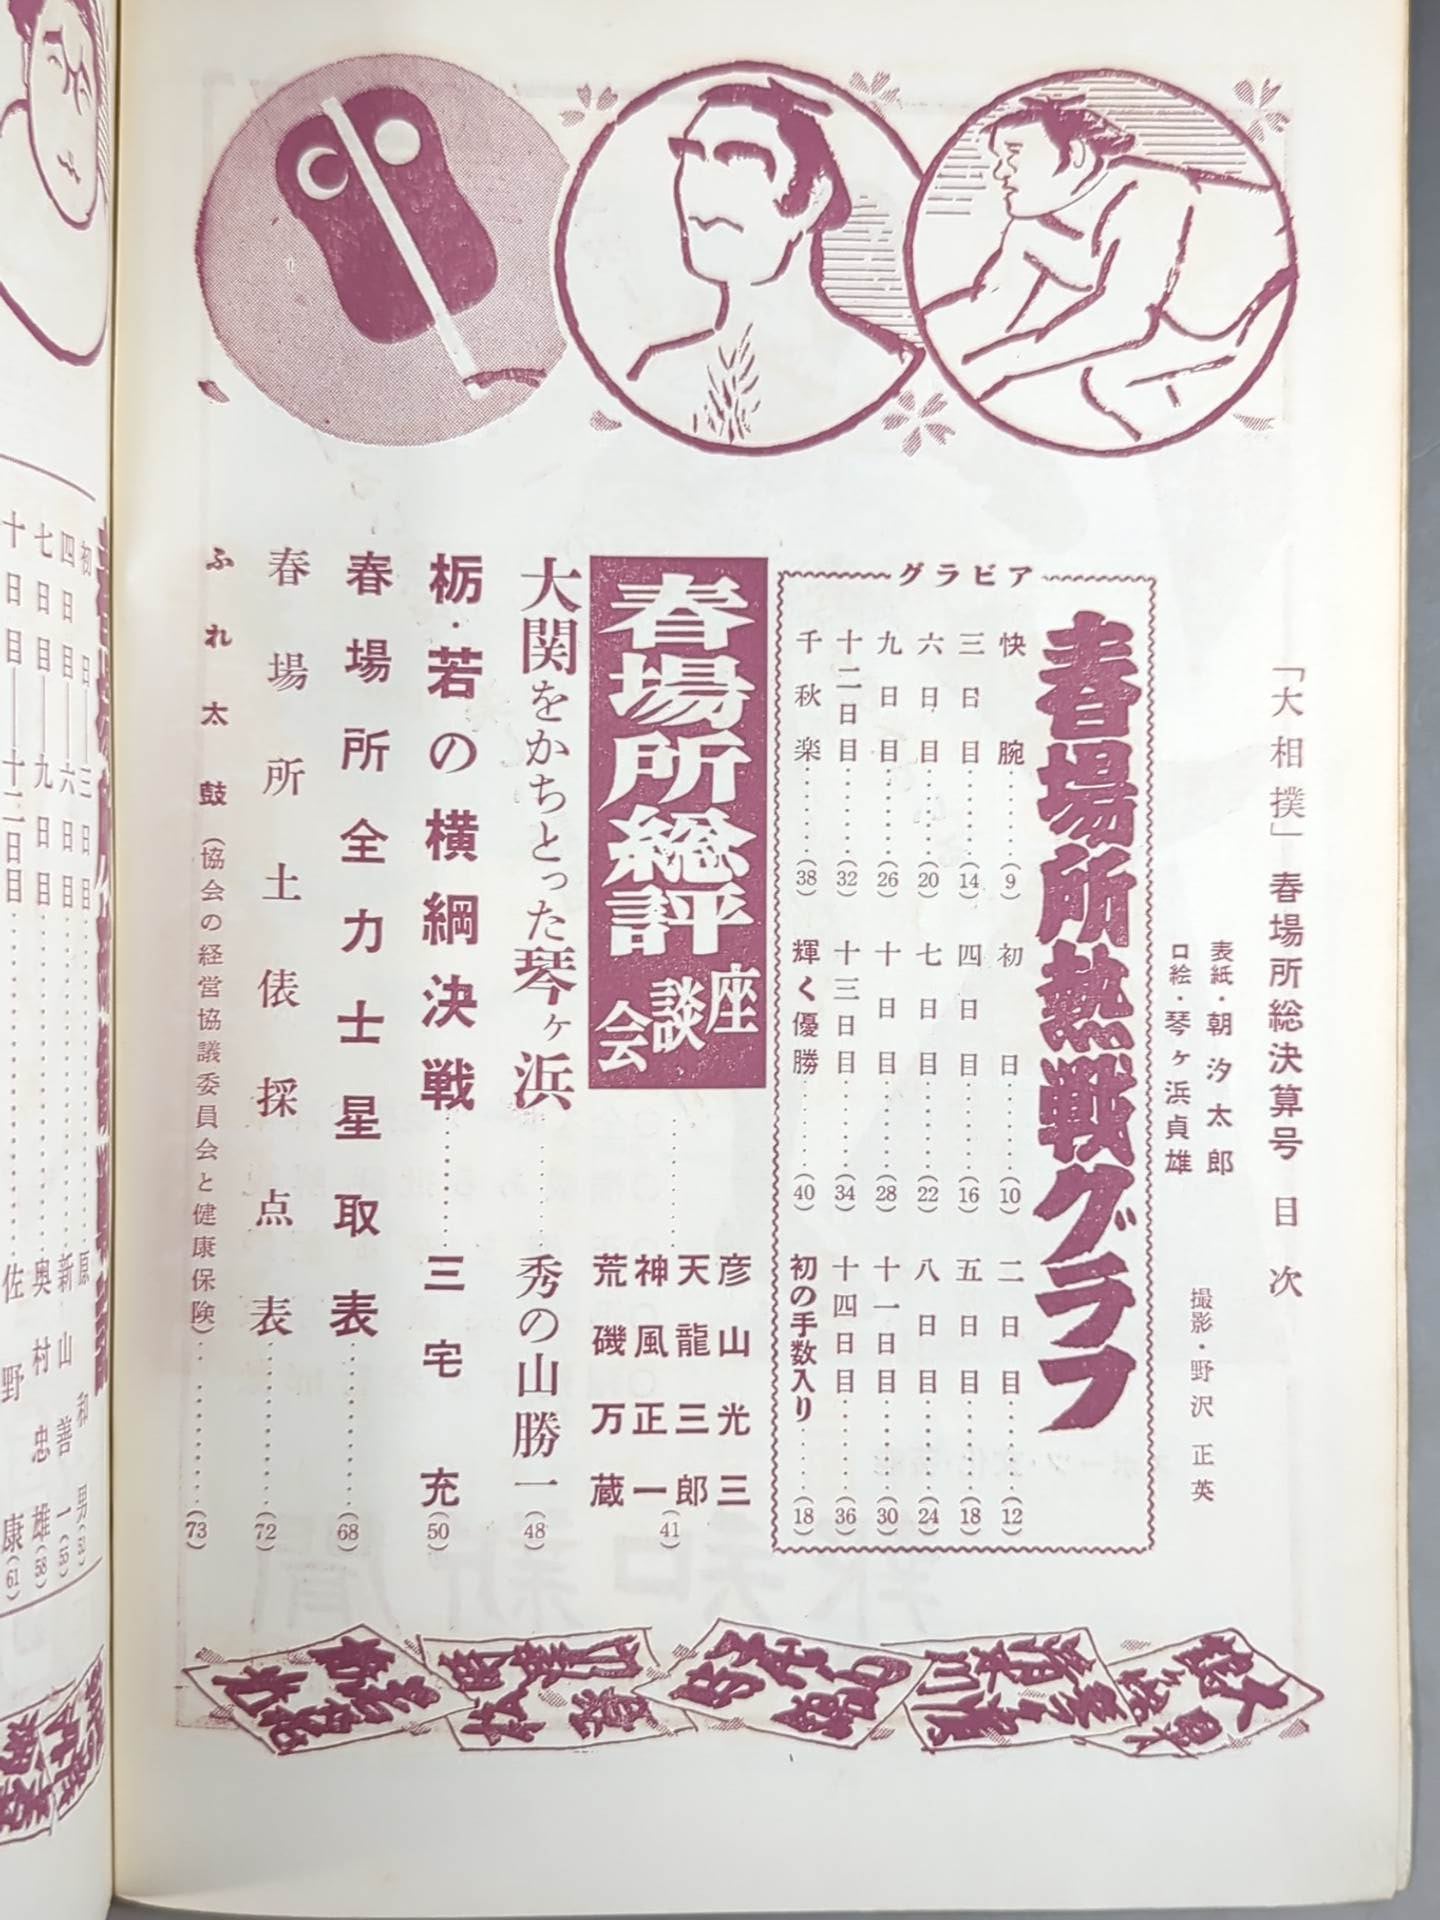 「大相撲」春場所総決算号 目次
表紙・朝汐太郎
口絵・琴ヶ浜貞雄
撮影・野沢正英
グラビア
春場所熱戦グラフ
快腕……(9)
初日……(10)
二日目……(12)
三日目……(14)
四日目……(16)
五日目……(18)
六日目……(20)
七日目……(22)
八日目……(24)
九日目……(26)
十日目……(28)
十一日目……(30)
十二日目……(32)
十三日目……(34)
十四日目……(36)
千秋楽……(38)
輝く優勝……(40)
初の手数入り……(18)
春場所総評座談会……(41)
彦山光三
天龍三郎
神風正一
荒磯万蔵
大関をかちとった琴ヶ浜……秀の山勝一(48)
栃・若の横綱決戦……三宅充(50)
春場所全力士星取表……(68)
春場所土俵採点表……(72)
ふれ太鼓(協会の経営協議委員会と健康保険)……(73)
初日―三日目……原和男
四日目―六日目……新山善一(55)
七日目―九日目……奥村忠雄(58)
十日目―十二日目……佐野康(61)